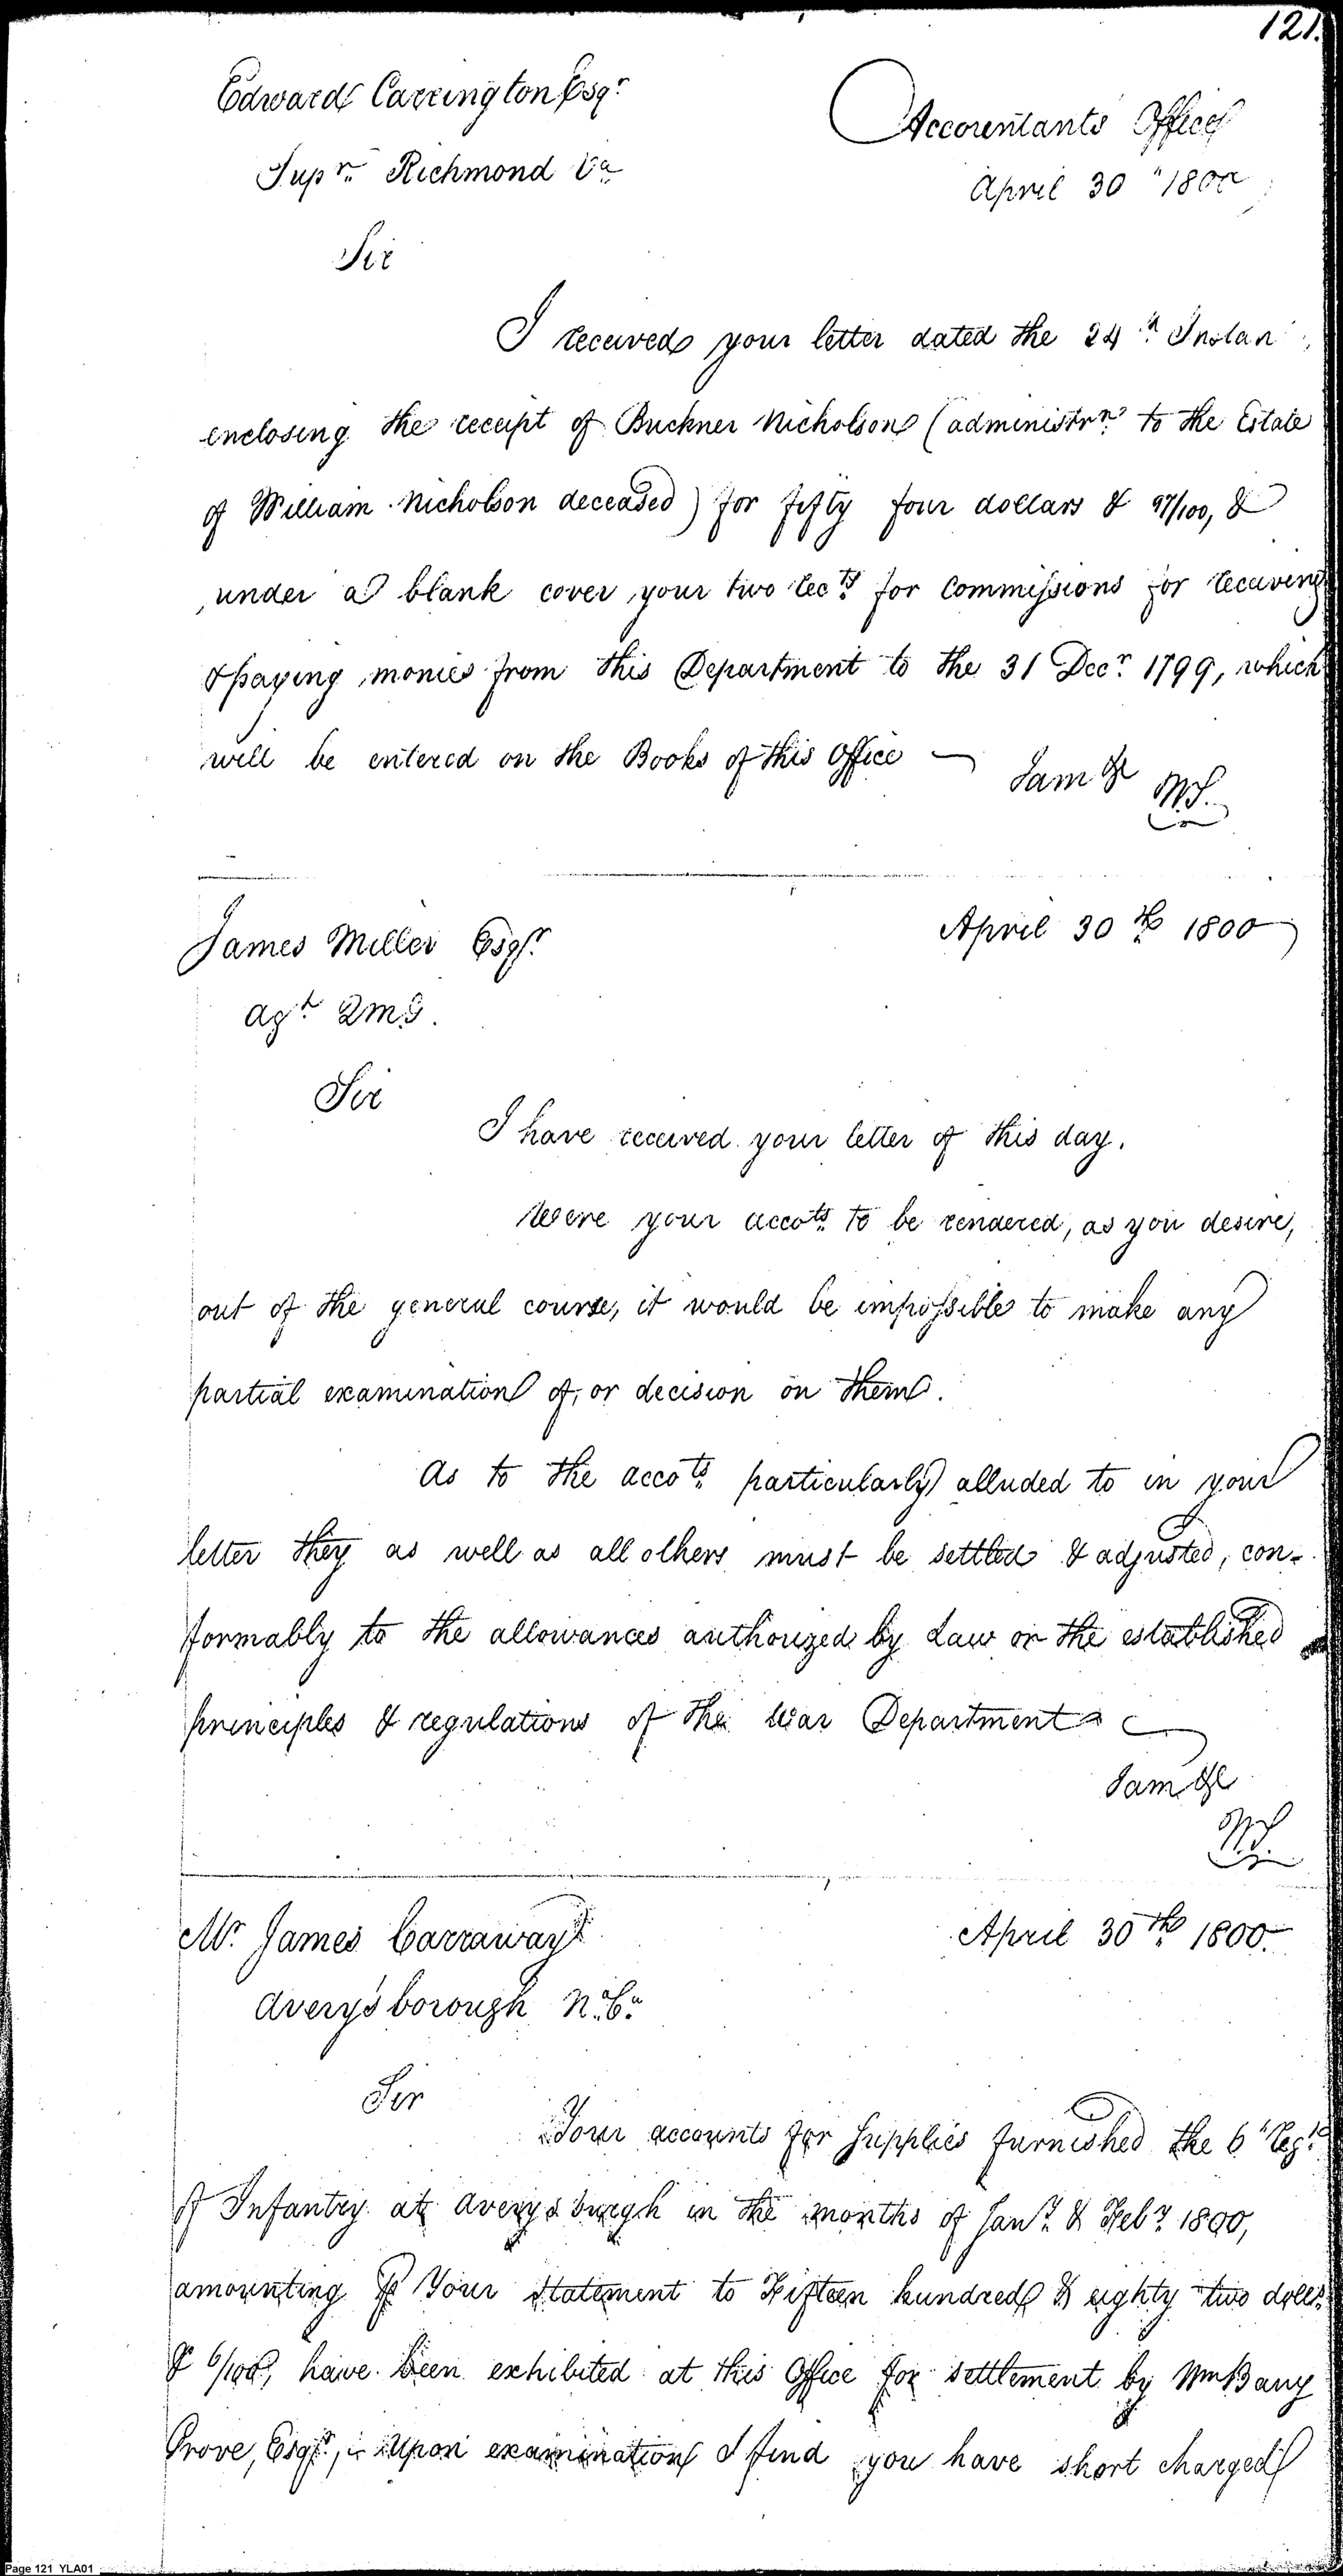 121.
Edward Carrington Esqr.
Accountants Office
Supr. Richmond Va
April 30 " 1800
Sir
I received your letter dated the 24th. Instan
enclosing the receipt of Buckner Nicholson (administrr. to the Estate
of William Nicholson deceased) for fifty four dollars & 97/100, &
under a blank cover your two rec.ts for Commissions for receiving
& paying monies from this Department to the 31 Decr. 1799, which
will be entered on the Books of this Office —
I am &c
W.S.
James Miller Esqr.
April 30th 1800
agt. QMG.
Sir
I have received your letter of this day.
Were your accots. to be rendered, as you desire,
out of the general course, it would be impossible to make any
partial examination of, or decision on them.
As to the accots. particularly alluded to in your
letter they as well as all others must be settled & adjusted, con-
formably to the allowances authorized by Law or the established
principles & regulations of the War Department —
I am &c
WS.
Mr. James Carraway
April 30th 1800.
Averysborough No. Ca.
Sir
Your accounts for Supplies furnished the 6th Regt.
of Infantry at Averysburgh in the months of Jany. & Feby. 1800,
amounting Your statement to Fifteen hundred & eighty two dolls.
& 6/100, have been exhibited at this Office for settlement by Wm Barry
Grove, Esqr., Upon examination I find you have short charged
Page 121 YLA01